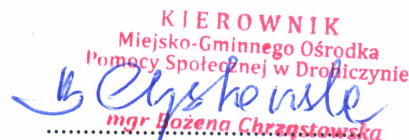 KIEROWNIK
Miejsko-Gminnego Ośrodka
Pomocy Społecznej w Drohiczynie
mgr Bożena Chrząstowska